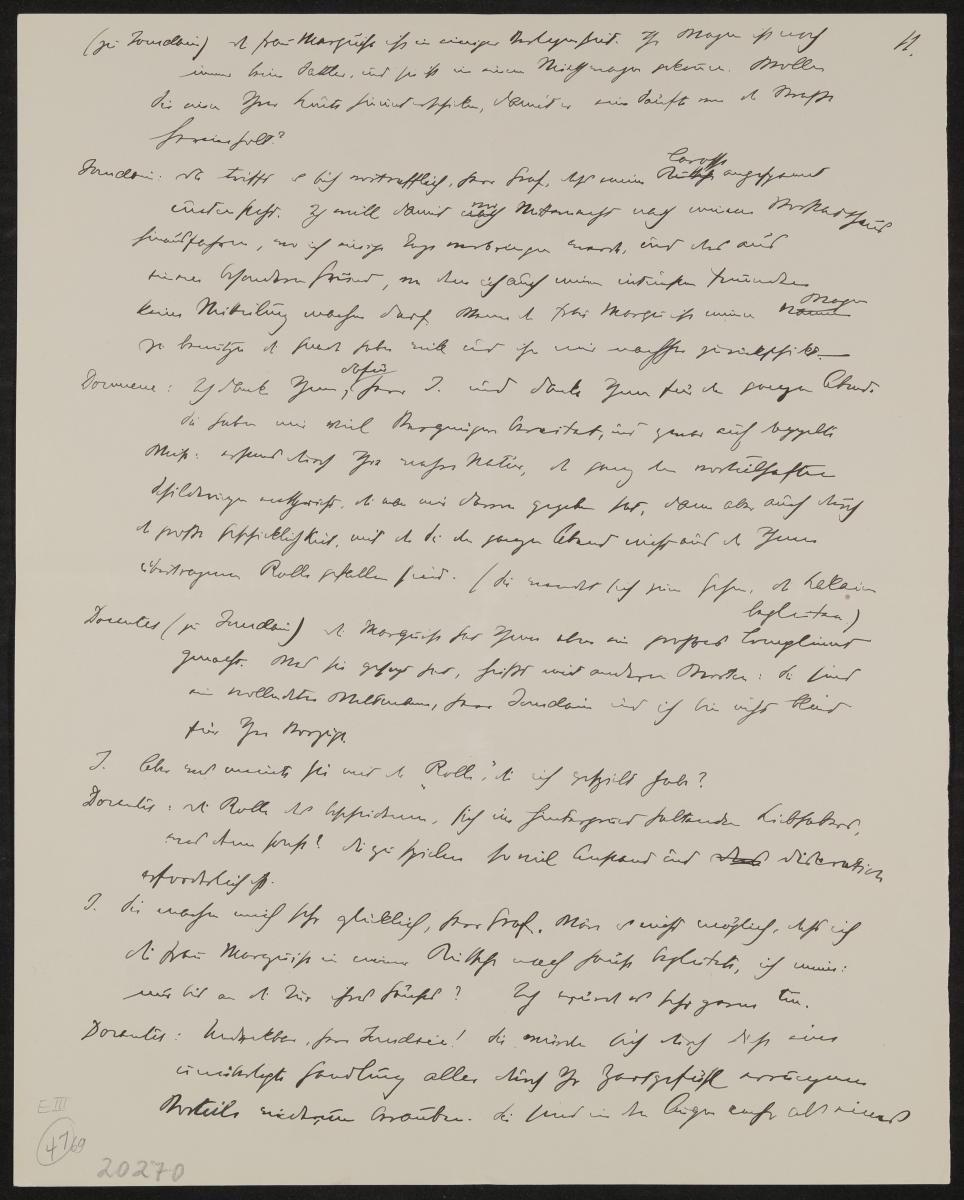 (zu Jourdain) die Frau Marquise ist in einiger Verlegenheit. Ihr Wagen ist noch 11.
immer beim Sattler, und sie ist in einem Mietwagen gekommen. Wollen
Sie einen Ihrer Leute hinunterschicken, damit er eine Sänfte von der Straße
hereinholt?
Jourdain: da trifft es sich vortrefflich, Herr Graf, daß meine Carosse angespannt
unten steht. Ich will damit um Mitternacht nach meinem Vorstadthaus
hinausfahren, wo ich einige Tage verbringen werde, und das aus
einem besonderen Grund, von dem ich auch meinen intimsten Freunden
keine Mitteilung machen darf. Wenn die Frau Marquise meinen Wagen
zu benützen die Gnade haben will und ihn mir nachher zurückschickt.—
Dorimene: Ich danke Ihnen dafür, Herr J. und danke Ihnen für den ganzen Abend.
Sie haben mir viel Vergnügen bereitet, und zwar auf doppelte
Weise: erstens durch Ihre wahre Natur, die ganz den vorteilhaften
Schilderungen entspricht, die man mir davon gegeben hat, dann aber auch durch
die große Geschicklichkeit, mit der Sie den ganzen Abend nicht aus der Ihnen
übertragenen Rolle gefallen sind. (Sie wendet sich zum Gehen, die Lakaien
begleiten)
Dorantes (zu Jourdain) die Marquise hat Ihnen eben ein großes Compliment
gemacht. Was sie gesagt hat, heißt mit anderen Worten: Sie sind
ein vollendeter Weltmann, Herr Jourdain und ich bin nicht blind
für Ihre Vorzüge.
J. Aber was meinte sie mit der „Rolle", die ich gespielt habe?
Dorantes: die Rolle des bescheidenen, sich im Hintergrund haltenden Liebhabers,
was denn sonst? die zu spielen soviel Anstand und Discretion
erforderlich ist.
J. Sie machen mich sehr glücklich, Herr Graf. Wäre es nicht möglich, daß ich
die Frau Marquise in meiner Kutsche nach Hause begleite, ich meine:
nur bis an die Tür ihres Hauses? Ich würde es sehr gerne tun.
Dorantes: Undenkbar, Herr Jourdain! Sie würden sich durch diese eine
unüberlegte Handlung aller durch Ihr Zartgefühl errungenen
Vorteile wiederum berauben. Sie sind in den Augen mehr als eines
E III
47/69
20270